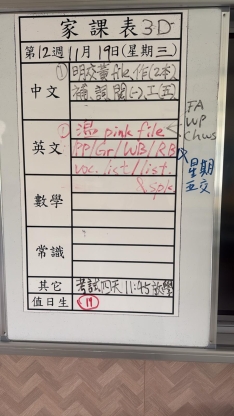 家課表 3D
第12週 11月19日(星期三)
中文
①明交黃file,作(2本)
補,詞,閱(一),工(五)
英文
①溫 pink file
PP/Gr/WB/RB
voc. list/list.
& spk
FA
WP
Chws
星期
五交
數學
常識
其它
考試四天 11:45放學
值日生
19